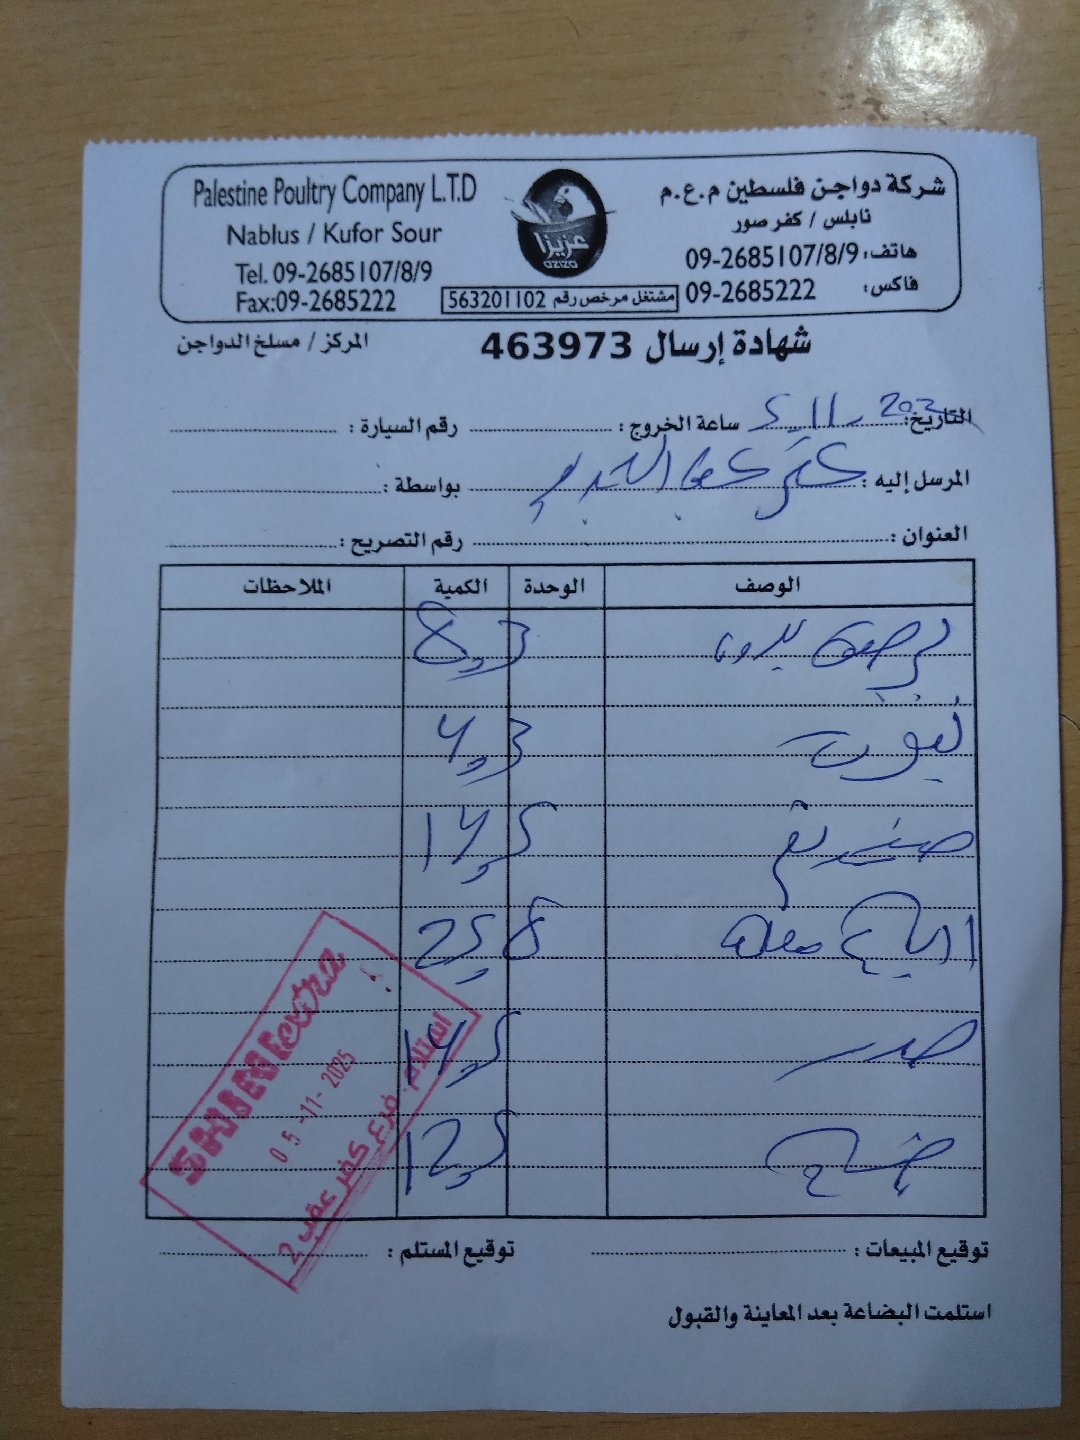 Palestine Poultry Company L.T.D
Nablus / Kufor Sour
Tel. 09-2685107/8/9
Fax:09-2685222
عزيزا
aziza
شركة دواجن فلسطين م.ع.م
نابلس / كفر صور
هاتف: 09-2685107/8/9
فاكس: 09-2685222
مشتغل مرخص رقم 563201102
شهادة إرسال 463973
المركز / مسلخ الدواجن
التاريخ: 5-11-202 ساعة الخروج: رقم السيارة:
المرسل إليه: كفر عقب الجديد بواسطة:
العنوان: رقم التصريح:
الوصف الوحدة الكمية الملاحظات
8,3
4,3
14,5
25,8
صدر 14,5
12,5
extra
05-11-2025
استلام فرع كفر عقب 2
توقيع المبيعات: توقيع المستلم:
استلمت البضاعة بعد المعاينة والقبول